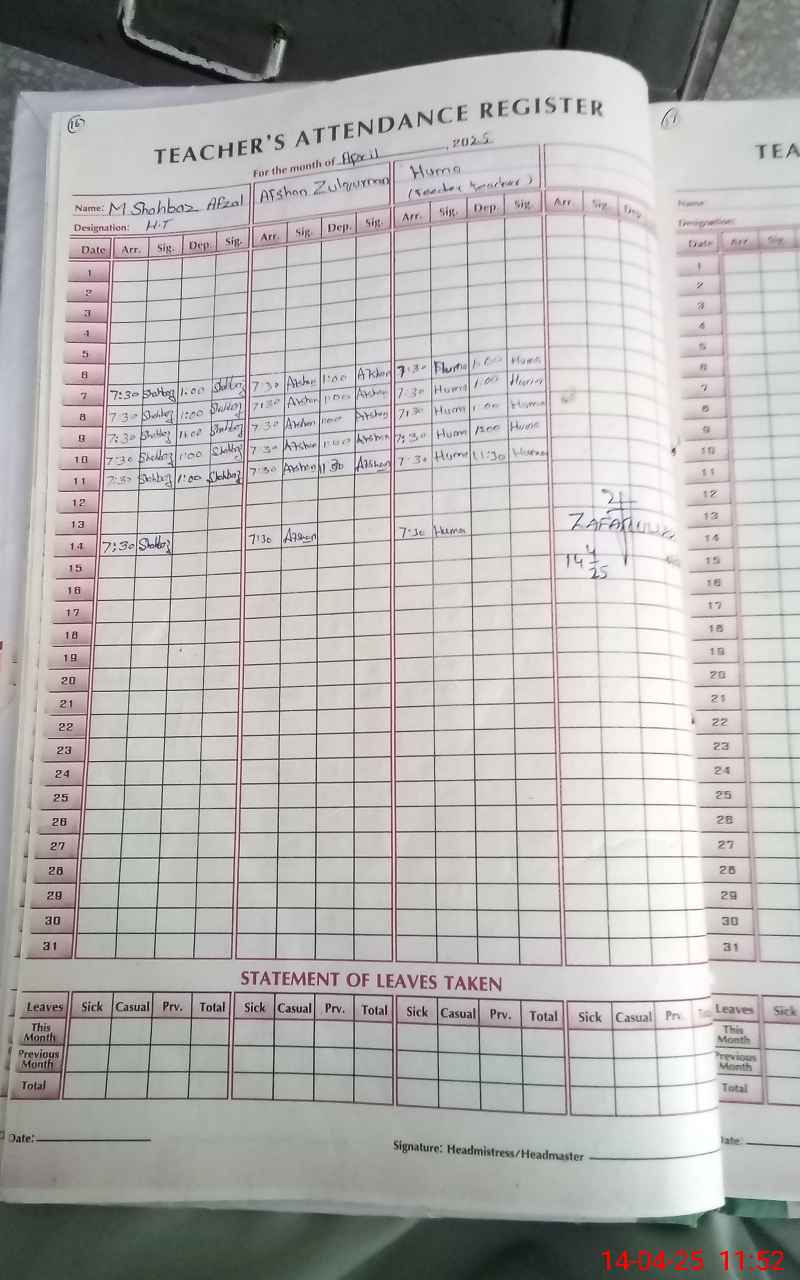 16
TEACHER'S ATTENDANCE REGISTER
For the month of April, 2025
Name: M Shahbaz Afzal Afshan Zulqurnan Huma
Designation: H.T (Teacher)
Date Arr. Sig. Dep. Sig. Arr. Sig. Dep. Sig. Arr. Sig. Dep. Sig. Arr. Sig. Dep.
1
2
3
4
5
6
7 7:30 Shahbaz 1:00 Shahbaz 7:30 Afshan 1:00 Afshan 7:30 Huma 1:00 Huma
8 7:30 Shahbaz 1:00 Shahbaz 7:30 Afshan 1:00 Afshan 7:30 Huma 1:00 Huma
9 7:30 Shahbaz 1:00 Shahbaz 7:30 Afshan 1:00 Afshan 7:30 Huma 1:00 Huma
10 7:30 Shahbaz 1:00 Shahbaz 7:30 Afshan 1:00 Afshan 7:30 Huma 1:00 Huma
11 7:30 Shahbaz 1:00 Shahbaz 7:30 Afshan 11:30 Afshan 7:30 Huma 11:30 Huma
12
13
14 7:30 Shahbaz 7:30 Afshan 7:30 Huma
14 4 25
15
16
17
18
19
20
21
22
23
24
25
26
27
28
29
30
31
STATEMENT OF LEAVES TAKEN
Leaves Sick Casual Prv. Total Sick Casual Prv. Total Sick Casual Prv. Total Sick Casual Prv.
This Month
Previous Month
Total
Date:
Signature: Headmistress/Headmaster
TEA
Name:
Designation:
Date Arr. Sig.
1
2
3
4
5
6
7
8
9
10
11
12
13
14
15
16
17
18
19
20
21
22
23
24
25
26
27
28
29
30
31
Leaves Sick
This Month
Previous Month
Total
Date:
14-04-25 11:52